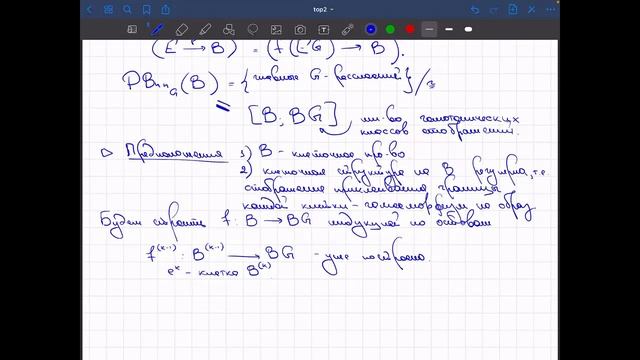 top2
(E' →^p B) = (f*(EG) → B).
PBun_G(B) = {главные G-расслоения}/~
= [B; BG] мн-во гомотопических классов отображений.
▷ Предположения 1) B - клеточное пр-во
2) клеточная структура на B регулярна, т.е.
отображение приклеивания границы
каждой клетки - гомеоморфизм на образ
Будем строить f: B → BG индукцией по остовам
f^(k-1): B^(k-1) → BG - уже построено.
e^k - клетка B^(k)